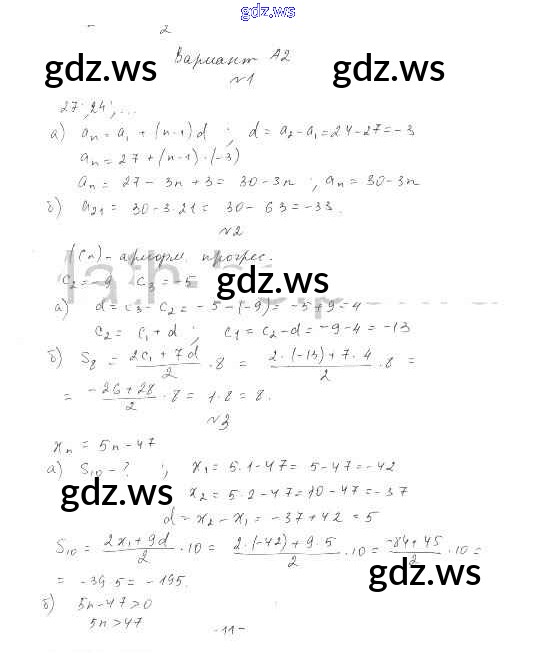 gdz.ws
2
Вариант А2
gdz.ws gdz.ws
№1
27; 24; ...
а) aₙ = a₁ + (n-1)d ; d = a₂ - a₁ = 24 - 27 = -3
aₙ = 27 + (n-1)·(-3)
aₙ = 27 - 3n + 3 = 30 - 3n ; aₙ = 30 - 3n
б) a₂₁ = 30 - 3·21 = 30 - 63 = -33.
№2
(Cₙ) - арифм. прогрес.
C₂ = -9 C₃ = -5
gdz.ws
а) d = C₃ - C₂ = -5 - (-9) = -5 + 9 = 4
C₂ = C₁ + d ; C₁ = C₂ - d = -9 - 4 = -13
б) S₈ = (2C₁ + 7d)/2 · 8 = (2·(-13) + 7·4)/2 · 8 =
= (-26 + 28)/2 · 8 = 1·8 = 8.
№3
xₙ = 5n - 47
а) S₁₀ - ? ; x₁ = 5·1 - 47 = 5 - 47 = -42
gdz.ws
x₂ = 5·2 - 47 = 10 - 47 = -37
d = x₂ - x₁ = -37 + 42 = 5
S₁₀ = (2x₁ + 9d)/2 · 10 = (2·(-42) + 9·5)/2 · 10 = (-84 + 45)/2 · 10 =
= -39·5 = -195.
gdz.ws
б) 5n - 47 > 0
5n > 47
-11-